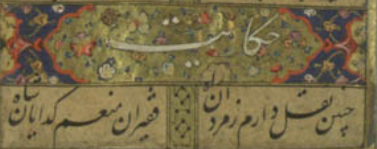 حکایت
چنین نقل دارم ز مردان راه
فقیران منعم گدایان شاه